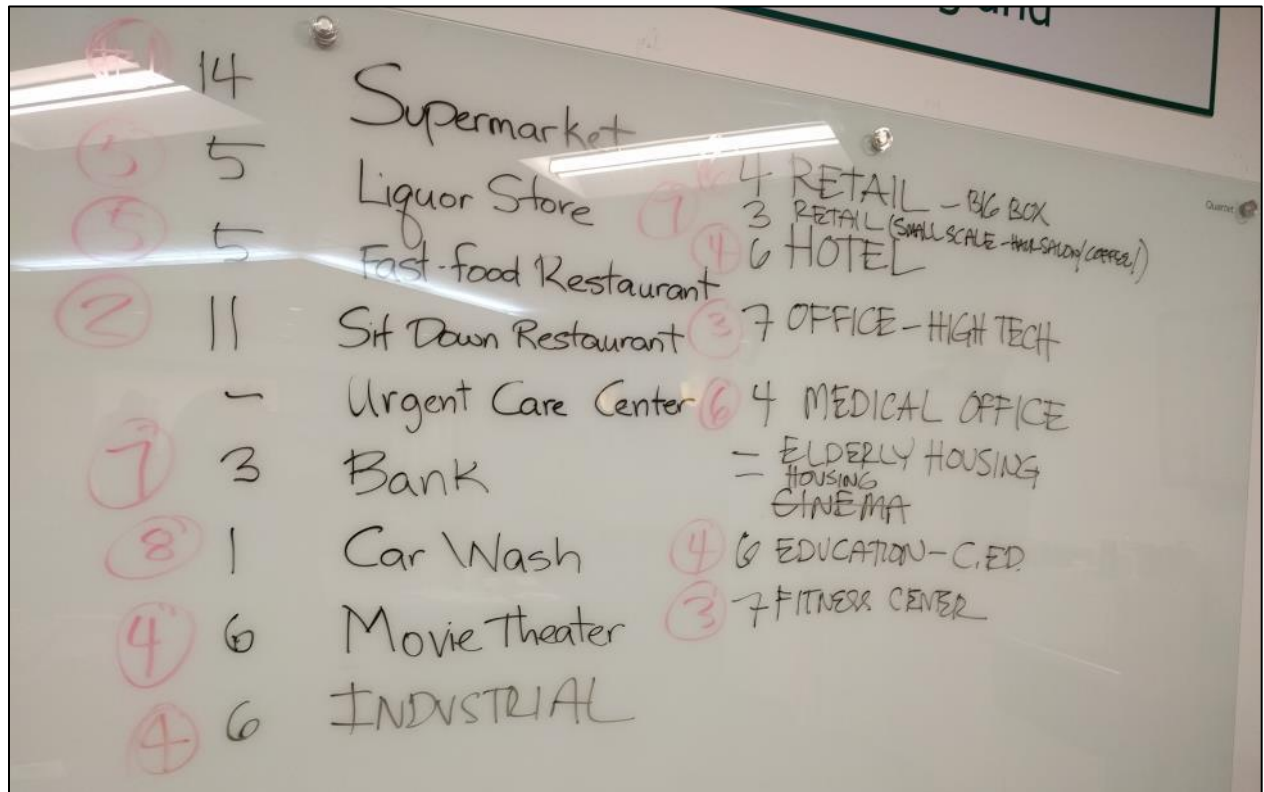 #1 14 Supermarket
5 5 Liquor Store
5 5 Fast-food Restaurant
2 11 Sit Down Restaurant
– Urgent Care Center
7 3 Bank
8 1 Car Wash
4 6 Movie Theater
4 6 INDUSTRIAL
and
Quartet
4 RETAIL – BIG BOX
7 3 RETAIL (SMALL SCALE - HAIR SALON/COFFEE/)
4 6 HOTEL
3 7 OFFICE – HIGH TECH
6 4 MEDICAL OFFICE
– ELDERLY HOUSING
– HOUSING
CINEMA
4 6 EDUCATION – C.ED.
3 7 FITNESS CENER